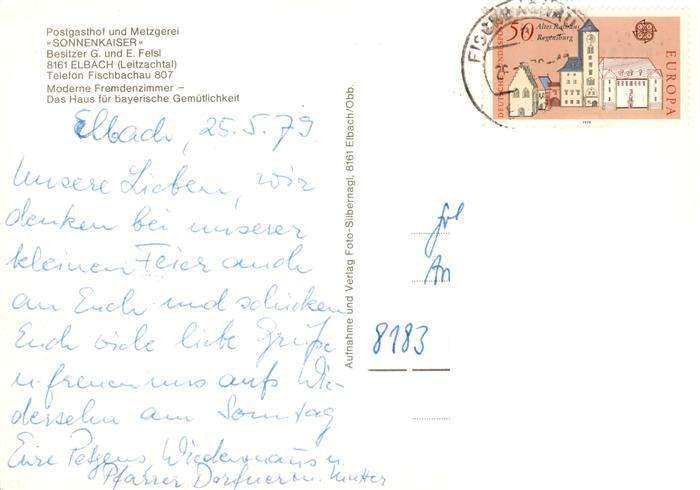 Postgasthof und Metzgerei
»SONNENKAISER«
Besitzer G. und E. Felsl
8161 ELBACH (Leitzachtal)
Telefon Fischbachau 807
Moderne Fremdenzimmer –
Das Haus für bayerische Gemütlichkeit
Elbach, 25.5.79
Unsere Lieben, wir
denken bei unserer
kleinen Feier auch
an Euch und schicken
Euch viele liebe Grüße
u. freuen uns aufs Wie-
dersehn am Sonntag
Eure
Pfarrer u. Mutter
Aufnahme und Verlag Foto-Silbernagl, 8161 Elbach/Obb.
FISCHBACHAU
DEUTSCHE BUNDESPOST
50
Altes Rathaus
Regensburg
EUROPA
1978
An
8183